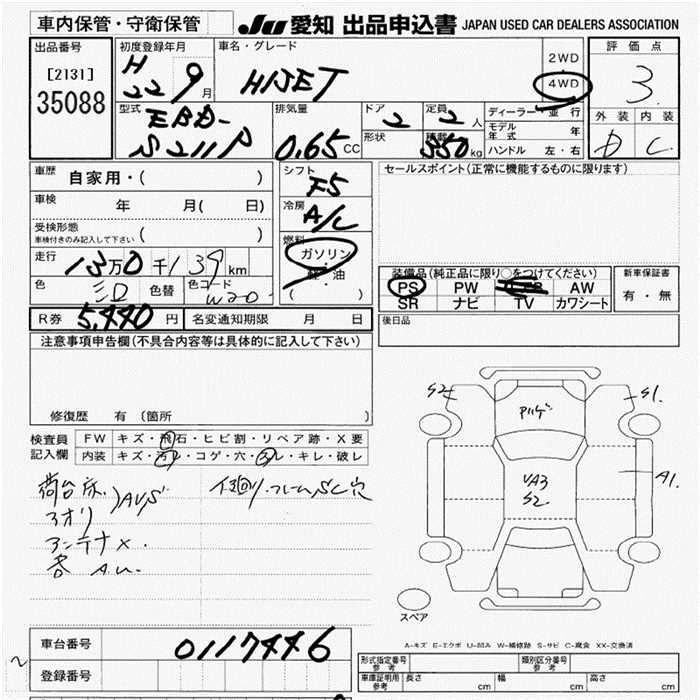 車内保管・守衛保管 JU 愛知 出品申込書 JAPAN USED CAR DEALERS ASSOCIATION
出品番号 初度登録年月 車名・グレード 2WD 評価点
[2131] H 22 9月 HIJET 4WD 3
35088
型式 排気量 ドア 定員 ディーラー・並行 外装 内装
EBD- 2 2人 モデル年式 年
S211P 0.65CC 形状 積載 350kg ハンドル 左・右 D C
車歴 自家用・( ) シフト F5 セールスポイント(正常に機能するものに限ります)
車検 年 月( 日) 冷房 A/C
受検形態
車検付きのみ記入して下さい ( ) 燃料 ガソリン
走行 13万0千139km 軽・油 装備品(純正品に限り○をつけてください) 新車保証書
色 色替 色コード W20 ( ) PS PW AW 有・無
SR ナビ TV カワシート
R券 5,440円 名変通知期限 月 日 後日品
注意事項申告欄(不具合内容等は具体的に記入して下さい)
修復歴 有(箇所 )
検査員 FW キズ・飛石・ヒビ割・リペア跡・X要
記入欄 内装 キズ・汚レ・コゲ・穴・スレ・キレ・破レ
荷台床 AUS 下廻り.フレームSC穴
アオリ
アンテナX.
S2 S1.
A1.
UA3
S2
スペア
A-キズ E-エクボ U-凹み W-補修跡 S-サビ C-腐食 XX-交換済
車台番号 0117446 形式指定番号 参考 類別区分番号 参考
登録番号 車庫証明用 参考 長さ cm 幅 cm 高さ cm